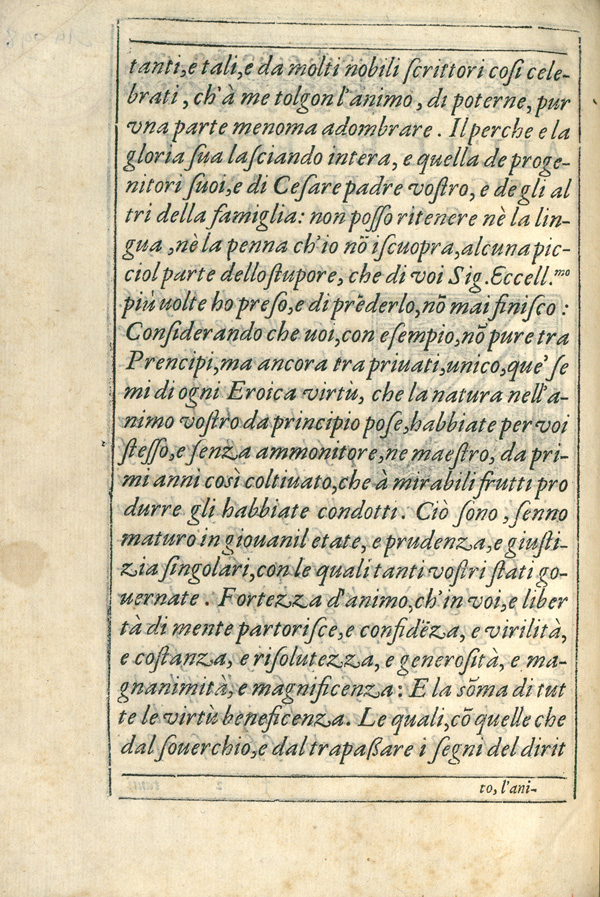 tanti, e tali, e da molti nobili ſcrittori coſi cele-
brati, ch'à me tolgon l'animo, di poterne, pur
vna parte menoma adombrare. Il perche e la
gloria ſua laſciando intera, e quella de proge-
nitori ſuoi, e di Ceſare padre voſtro, e de gli al
tri della famiglia: non poſſo ritenere nè la lin-
gua, nè la penna ch'io nõ iſcuopra, alcuna pic-
ciol parte dello ſtupore, che di voi Sig. Eccell.mo
più uolte ho preſo, e di prẽderlo, nõ mai finiſco:
Conſiderando che uoi, con eſempio, nõ pure tra
Prencipi, ma ancora tra priuati, unico, que' ſe
mi di ogni Eroica virtù, che la natura nell'a-
nimo voſtro da principio poſe, habbiate per voi
ſteſſo, e ſenza ammonitore, ne maeſtro, da pri-
mi anni così coltiuato, che à mirabili frutti pro
durre gli habbiate condotti. Ciò ſono, ſenno
maturo in giouanil etate, e prudenza, e giuſti-
zia ſingolari, con le quali tanti voſtri ſtati go-
uernate. Fortezza d'animo, ch'in voi, e liber
tà di mente partoriſce, e confidẽza, e virilità,
e coſtanza, e riſolutezza, e generoſità, e ma-
gnanimità, e magnificenza: E la sõma di tut
te le virtù beneficenza. Le quali, cõ quelle che
dal ſouerchio, e dal trapaßare i ſegni del dirit
to, l'ani-